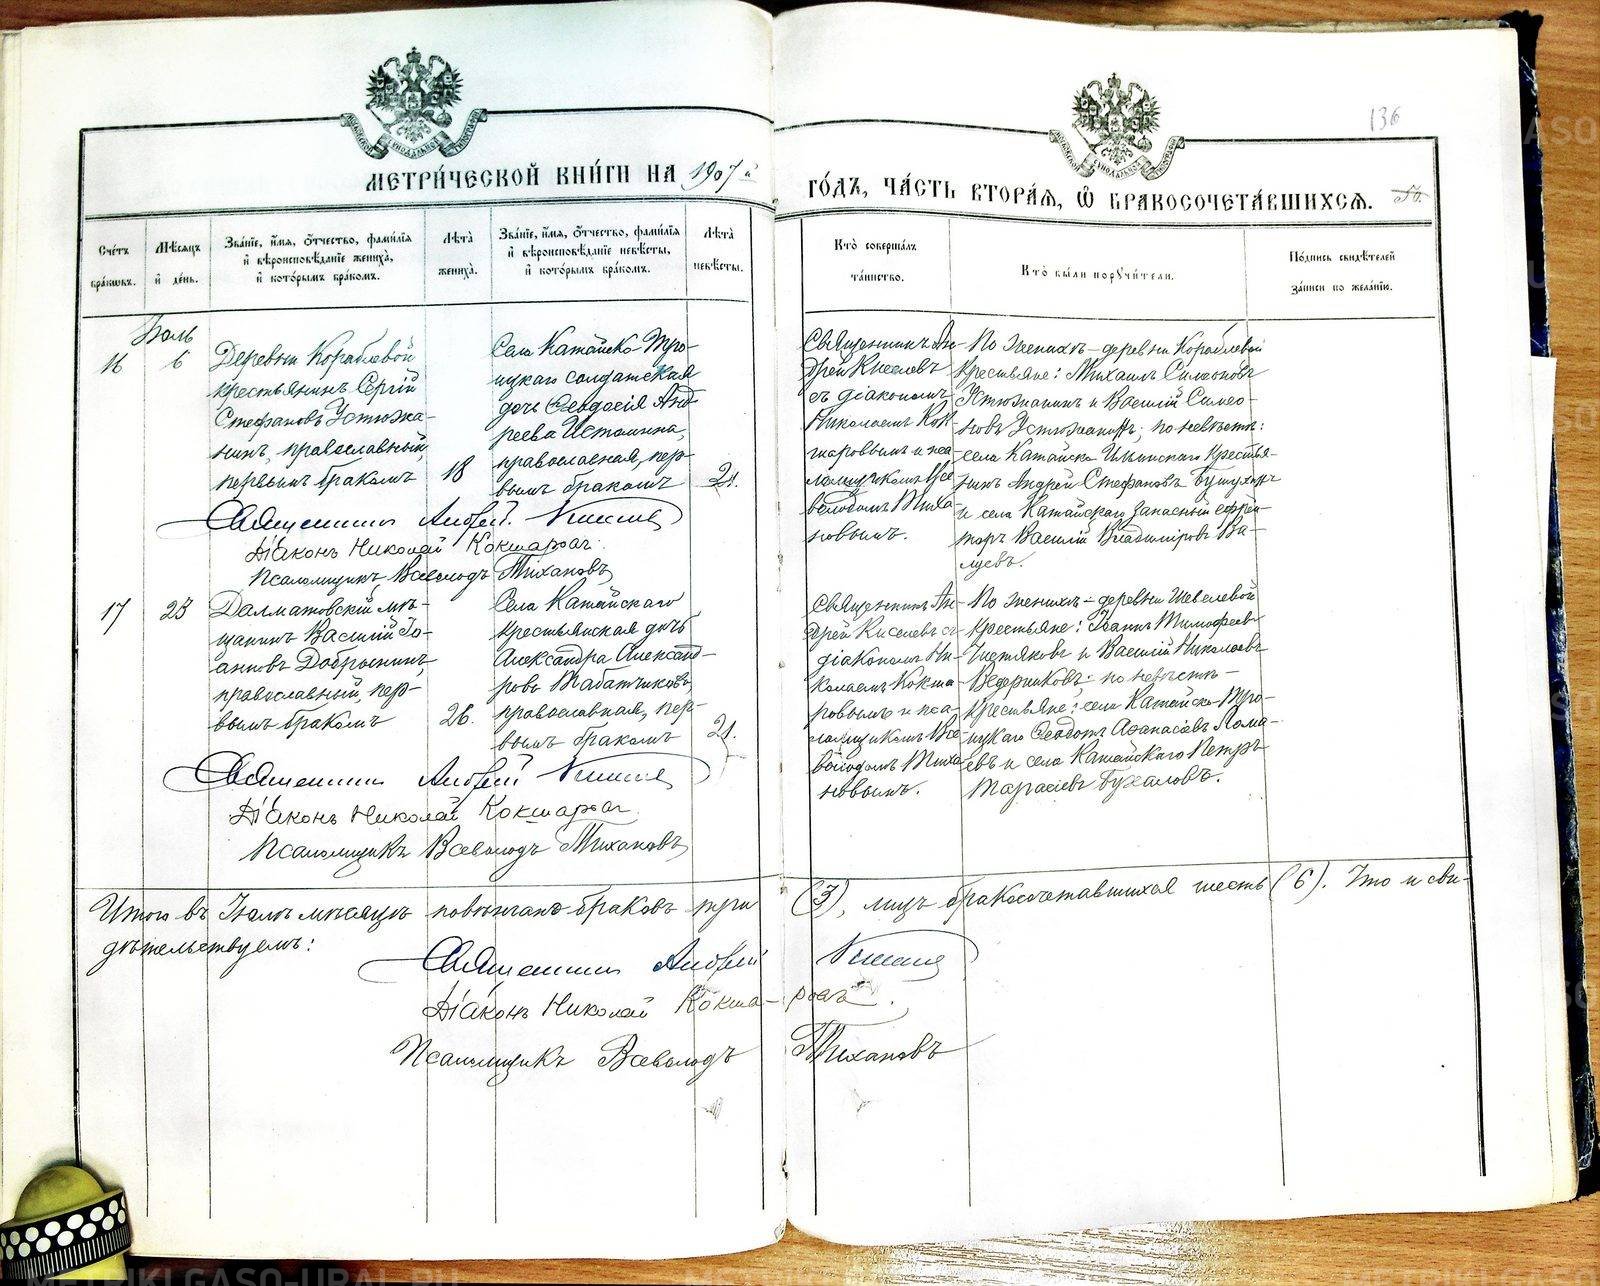 136
МЕТРИ́ЧЕСКОЙ КНИ́ГИ НА 1907й ГО́ДЪ, ЧА́СТЬ ВТОРА́Я, Ѿ БРАКОСОЧЕТА́ВШИХСЯ.
Счетъ бра́кωвъ.
Мѣ́сяцъ и҆ де́нь.
Зва́нїе, и҆́мя, ѻ҆́тчество, фами́лїя
и҆ вѣроисповѣ́данїе жениха̀,
и҆ кото́рымъ бра́комъ.
Лѣ́та
жениха̀.
Зва́нїе, и҆́мя, ѻ҆́тчество, фами́лїя
и҆ вѣроисповѣ́данїе невѣ́сты,
и҆ кото́рымъ бра́комъ.
Лѣ́та
невѣ́сты.
Кто̀ соверша́лъ
та́инство.
Кто̀ бы́ли поручи́тели.
По́дпись свидѣ́телей
за́писи по жела́нїю.
Іюль
16
6
Деревни Кораблевой
крестьянинъ Сергій
Стефановъ Устюжа-
нинъ, православный,
первымъ бракомъ
18
Села Катайско-Тро-
ицкаго солдатская
дочь Ѳеодосія Анд-
реева Истомина,
православная, пер-
вымъ бракомъ
21.
Священникъ Ан-
дрей Киселевъ
съ діакономъ
Николаемъ Кок-
шаровымъ и пса-
ломщикомъ Все-
володомъ Тиха-
новымъ.
По женихѣ – деревни Кораблевой
крестьяне: Михаилъ Симеоновъ
Устюжанинъ и Василій Симео-
новъ Устюжанинъ; по невѣстѣ:
села Катайско Ильинскаго крестья-
нинъ Андрей Стефановъ
и села Катайскаго запасный ефрей-
торъ Василій Владиміровъ Ва-
луевъ.
Священникъ Андрей Киселевъ
Діаконъ Николай Кокшаровъ
Псаломщикъ Всеволодъ Тихановъ
17
23
Далматовскій мѣ-
щанинъ Василій Іо-
анновъ Доброснинъ,
православный, пер-
вымъ бракомъ
26.
Села Катайскаго
крестьянская дочь
Александра Александ-
рова Табатчикова,
православная, пер-
вымъ бракомъ
21.
Священникъ Ан-
дрей Киселевъ съ
діакономъ Ни-
колаемъ Кокша-
ровымъ и пса-
ломщикомъ Все-
володомъ Тиха-
новымъ.
По женихѣ – деревни Шевелевой
крестьяне: Іоаннъ Тимофеевъ
и Василій Николаевъ
Ведерниковъ; по невѣстѣ –
крестьяне: села Катайско-Тро-
ицкаго Ѳеодотъ Аѳанасіевъ Лома-
евъ и села Катайскаго Петръ
Тарасіевъ Бухаловъ.
Священникъ Андрей Киселевъ
Діаконъ Николай Кокшаровъ
Псаломщикъ Всеволодъ Тихановъ
Итого въ Іюлѣ мѣсяцѣ повѣнчано браковъ три (3), лицъ бракосочетавшихся шесть (6). Что и сви-
дѣтельствуемъ:
Священникъ Андрей Киселевъ
Діаконъ Николай Кокша-ровъ.
Псаломщикъ Всеволодъ Тихановъ
METRIKI.GASO-URAL.RU